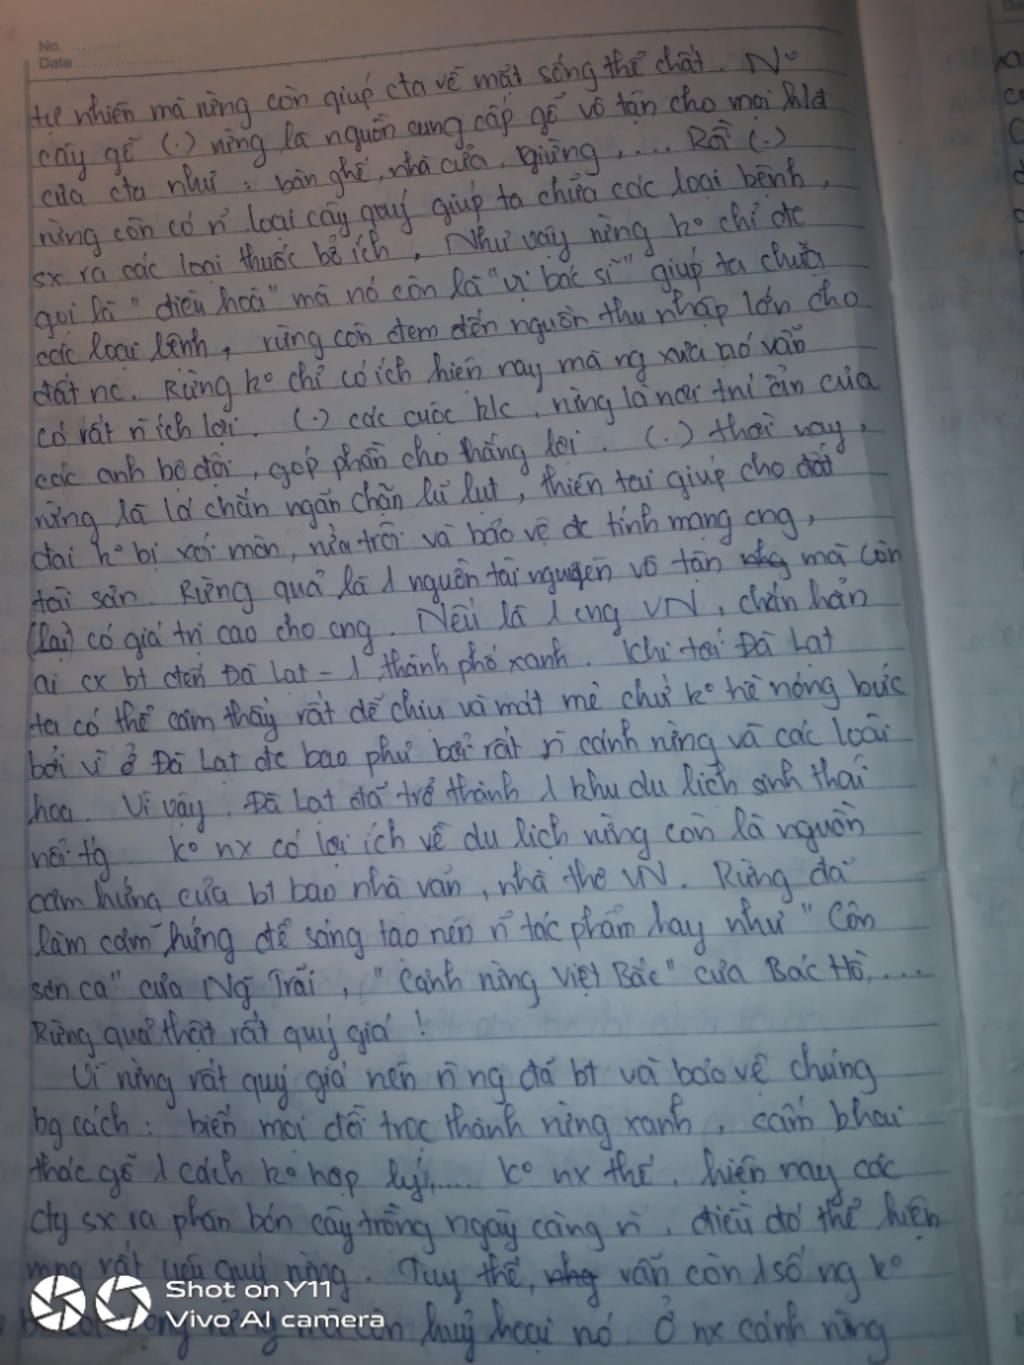 No. ..........
Date ....................
tự nhiên mà rừng còn giúp cta về mặt sống thể chất. N°
cây gỗ (.) rừng là nguồn cung cấp gỗ vô tận cho mọi
của cta như : bàn ghế, nhà cửa, giừng, .... Rồi (.)
rừng còn có n̄ loại cây quý giúp ta chữa các loại bệnh,
sx ra các loại thuốc bổ ích, Như vậy rừng k° chỉ đc
gọi là " điều hoà" mà nó còn là "vị bác sĩ" giúp ta chữa
các loại bệnh, rừng còn đem đến nguồn thu nhập lớn cho
đất nc. Rừng k° chỉ có ích hiện nay mà ng xưa nó vẫn
có rất n̄ ích lợi. (.) các cuộc k/c, rừng là nơi trú ẩn của
các anh bộ đội, góp phần cho thắng lợi. (.) thời nay,
rừng là lá chắn ngăn chặn lũ lụt, thiên tai giúp cho đất
đai k° bị xói mòn, rửa trôi và bảo vệ đc tính mạng cng,
tài sản. Rừng quả là 1 nguồn tài nguyên vô tận nhg mà còn
(lại) có giá trị cao cho cng. Nếu là 1 cng VN, chắn hẳn
ai cx bt đến Đà Lạt - 1 thành phố xanh. Khi tới Đà Lạt
ta có thể cảm thấy rất dễ chịu và mát mẻ chứ k° hề nóng bức
bởi vì ở Đà Lạt đc bao phủ bởi rất n̄ cánh rừng và các loài
hoa. Vì vậy, Đà Lạt đã trở thành 1 khu du lịch sinh thái
nổi tg k° nx có lợi ích về du lịch rừng còn là nguồn
cảm hứng của bt bao nhà văn, nhà thơ VN. Rừng đã
làm cảm hứng để sáng tạo nên n̄ tác phẩm hay như " Côn
sơn ca" của Ng̃ Trãi, " Cảnh rừng Việt Bắc" của Bác Hồ,....
Rừng quả thật rất quý giá !
Vì rừng rất quý giá nên n̄ ng đã bt và bảo vệ chúng
bg cách : biến mọi đồi trọc thành rừng xanh, cấm khai
thác gỗ 1 cách k° hợp lý,.... k° nx thế, hiện nay các
cty sx ra phân bón cây trồng ngày càng n̄, điều đó thể hiện
mng rất yêu quý rừng. Tuy thế, nhg vẫn còn 1 số ng k°
rừng mà còn huỷ hoại nó. Ở nx cánh rừng
Shot on Y11
Vivo AI camera